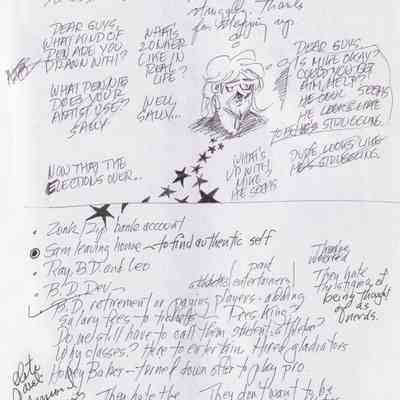 struggling. Thanks
for stepping up
DEAR GUYS,
WHAT KIND OF
PEN ARE YOU
DRAWN WITH?
WHAT PEN NIB
DOES YOUR
ARTIST USE?
SALLY
NOW THAT THE
ELECTIONS OVER..
WHAT'S
ZONKER
LIKE IN
REAL
LIFE?
WELL,
SALLY...
DEAR GUYS,
IS MIKE OKAY?
COULD YOU GET
HIM HELP?
HE SEEMS
HE LOOKS LIKE
HE'S STRUGGLING
DUDE LOOKS LIKE
HE'S STRUGGLING.
WHAT'S
UP WITH
MIKE
HE SEEMS
• Zonk/Zip bank account
• Sam leaving home to find authentic self
• Ray, B.D. and Leo
• B.D. Dev
B.D. retirement or paying players - adding
paid
athletes/entertainers/
salary fees to tickets Fees King?
Do we still have to call them student-athletes?
Why classes? Here to entertain Hired gladiators
Honey Baker - turned down offer to play pro
They hate
the stigma of
being thought
of as
nerds.
They hate the
They don't want to be